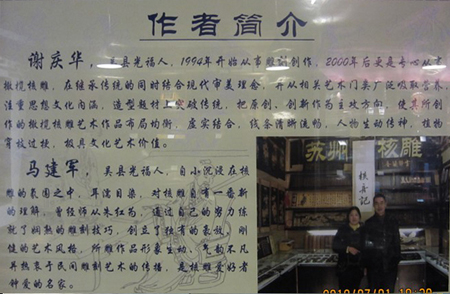 作者简介
谢庆华，吴县光福人，1994年开始从事雕刻创作，2000年后更是专心从事
橄榄核雕，在继承传统的同时结合现代审美理念，并从相关艺术门类广泛吸取营养，
注重思想文化内涵，造型题材上突破传统，把原创、创新作为主攻方向，使其所创
作的橄榄核雕艺术作品布局均衡，虚实结合，线条清晰流畅，人物生动传神，植物
有放过梗，极具文化艺术价值。
马建军，吴县光福人，自小沉浸在核
雕的氛围之中，耳濡目染，对核雕自有一番新
的理解，曾投师从朱红为，通过自己的努力练
就了娴熟的雕刻技巧，创立了独有的豪放、刚
健的艺术风格，所雕作品形象生动，气韵不凡
并热衷于民间雕刻艺术的传播，是核雕爱好者
钟爱的名家。
苏州 核雕
核舟记